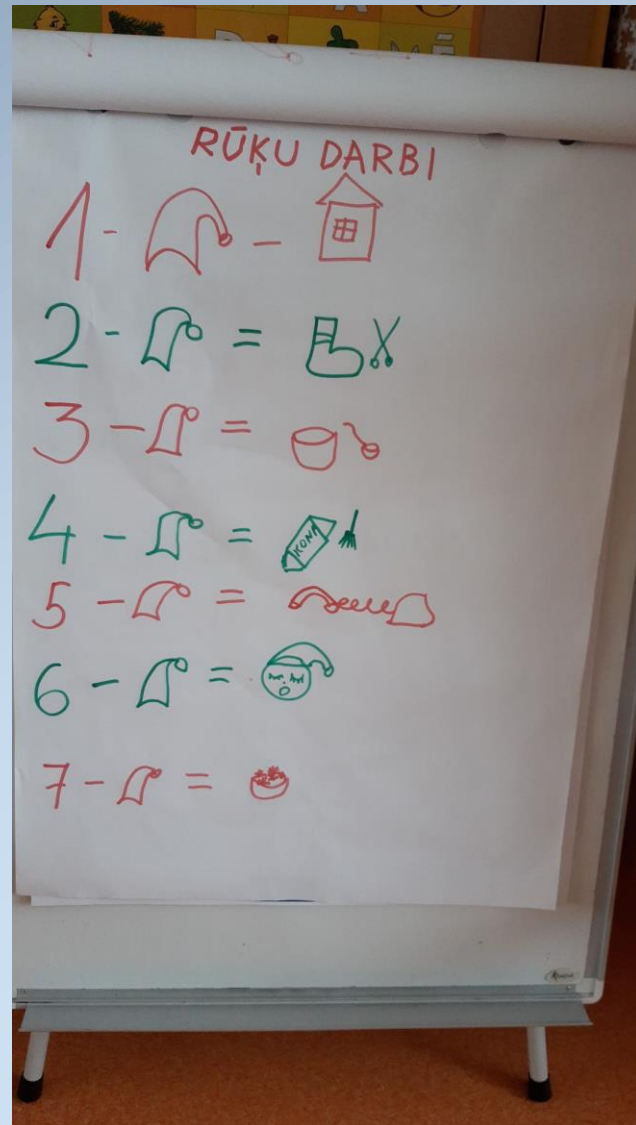 RŪĶU DARBI
1 - -
2 - =
3 - =
4 - =
5 - =
6 - =
7 - =